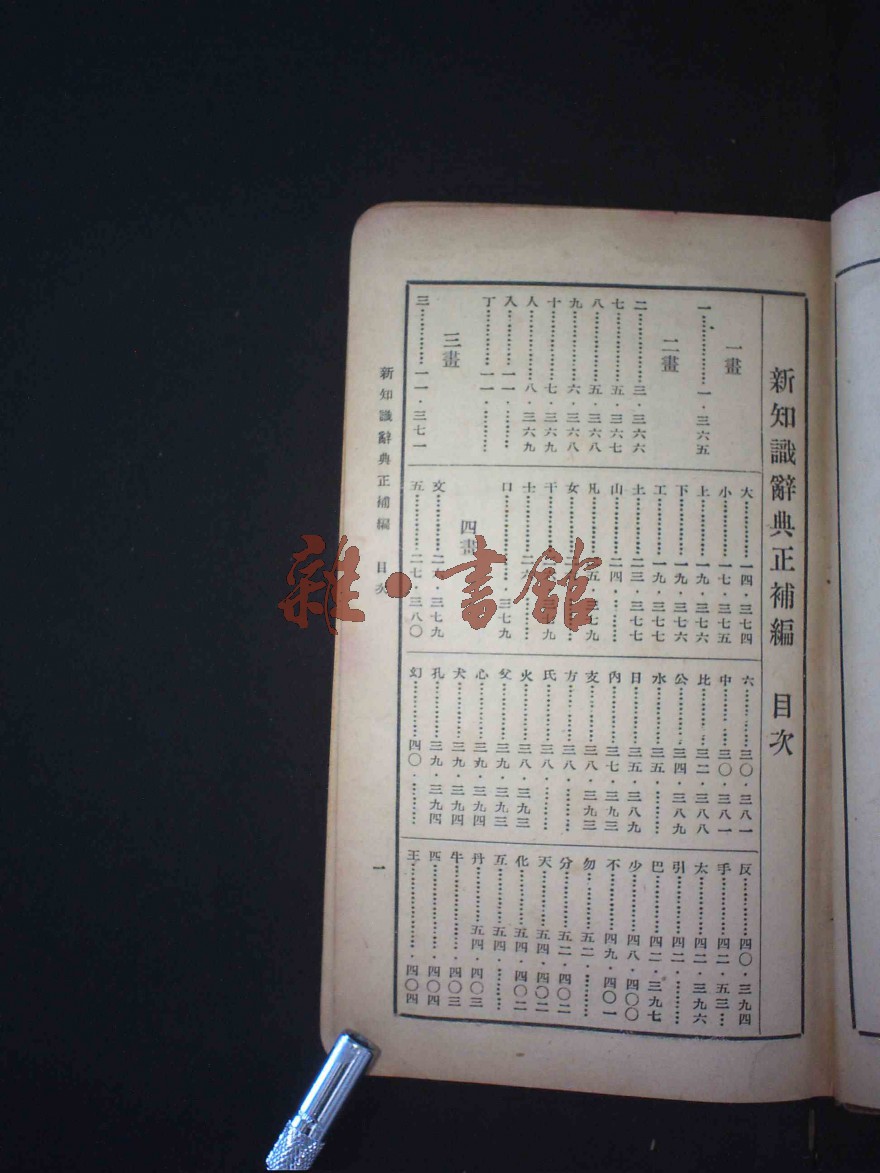 新知識辭典正補編 目次
一畫
一………一·三六五
二畫
二………三·三六六
七………五·三六七
八………五·三六八
九………六·三六八
十………七·三六九
人………八·三六九
入………一一·………
丁………一一·………
三畫
三………一一·三七一
大………一四·三七四
小………一七·三七五
上………一九·三七六
下………一九·三七六
工………一九·三七七
土………二三·三七七
山………二四·………
凡………五·三七九
女………
干………
士………二六
口………三七九
四畫
文………二·三七九
五………二七·三八〇
六………三〇·三八一
中………三〇·三八一
比………三二·三八八
公………三四·三八九
水………三五·………
日………三五·三八九
內………三七·三九三
支………三八·三九三
方………三八·………
氏………三八·………
火………三八·三九三
父………三九·三九三
心………三九·三九四
犬………三九·三九四
孔………三九·三九四
幻………四〇·………
反………四〇·三九四
手………四二·五三…
太………四二·三九六
引………四二·………
巴………四二·三九七
少………四八·四〇〇
不………四九·四〇一
勿………五二·………
分………五二·四〇二
天………五四·四〇二
化………五四·四〇二
互………五四·………
丹………五四·四〇三
牛………四〇三
匹………四〇四
王………四〇四
新知識辭典正補編 目次
一
雜·書館